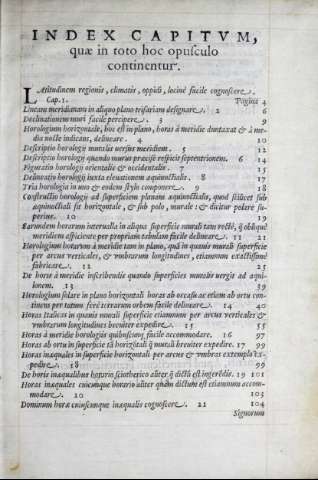 INDEX CAPITVM,
quæ in toto hoc opusculo
continentur.
LAtitudinem regionis, climatis, oppidi, locive facile cognoscere.
Cap. 1. Pagina 4
Lineam meridianam in aliquo plano trifariam designare. 2 6
Declinationem muri facile percipere. 3 9
Horologium horizontale, hoc est in plano, horas à meridie duntaxat & à me-
dia nocte indicans, delineare. 4 10
Descriptio horologii muralis versus meridiem. 5 12
Descriptio horologii quando murus præcise respicit septentrionem. 6 14
Figuratio horologii orientalis & occidentalis. 7 15
Delineatio horologii iuxta eleuationem æquinoctialis. 8 17
Tria horologia in uno & eodem stylo componere. 9 18
Constructio horologii ad superficiem planam æquinoctialis, quod scilicet sub
æquinoctiali sit horizontale, & sub polo, murale: & dicitur polare su-
perius. 10 19
Earundem horarum interualla in aliqua superficie murali tam rectè, q̃ obliquè
meridiem aspiciente per propriam tabulam facile delineare. 11 21
Horologium horarum à meridie tam in plano, quã in quauis murali superficie
per arcus verticales, & vmbrarum longitudines, etiamnum exactissimè
fabricare. 12 25
De horis à meridie inscribendis quando superficies muralis vergit ad aqui-
lonem. 13 39
Horologium solare in plano horizontali horas ab occasu ac etiam ab ortu con-
tinens per totum ferè terrarum orbem facile delineare. 14 40
Horas Italicas in quauis murali superficie etiamnum per arcus verticales &
vmbrarum longitudines breuiter expedire. 15 55
Horas à meridie horologiis quibuscunq; facile accommodare. 16 97
Horas ab ortu in superficie tã horizõtali q̃ murali breuiter expedire. 17 99
Horas inæquales in superficie horizontali per arcus & vmbras extemplo ex-
pedire. 18 99
De horis inæqualibus horario sciotherico aliter q̃ dictũ est ingerẽdis. 19 101
Horas inæquales cuicumque horario aliter quàm dictum est etiamnum accom-
modare. 20 103
Dominum horæ cuiuscumque inæqualis cognoscere. 21 104
Signorum